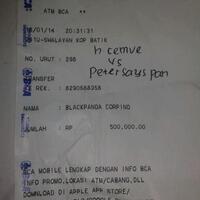 ATM BCA **
/01/14 20:31:31
-SWALAYAN KOP BATIK
h cemue
vs
NO. URUT : 298
Petersayspan
TRANSFER
REK. : 8290568058
NAMA : BLACKPANDA CORPIND
JUMLAH : RP 500,000.00
BCA MOBILE LENGKAP DENGAN INFO BCA
INFO PROMO,LOKASI ATM/CABANG,DLL
DOWNLOAD DI APPLE APP STORE/